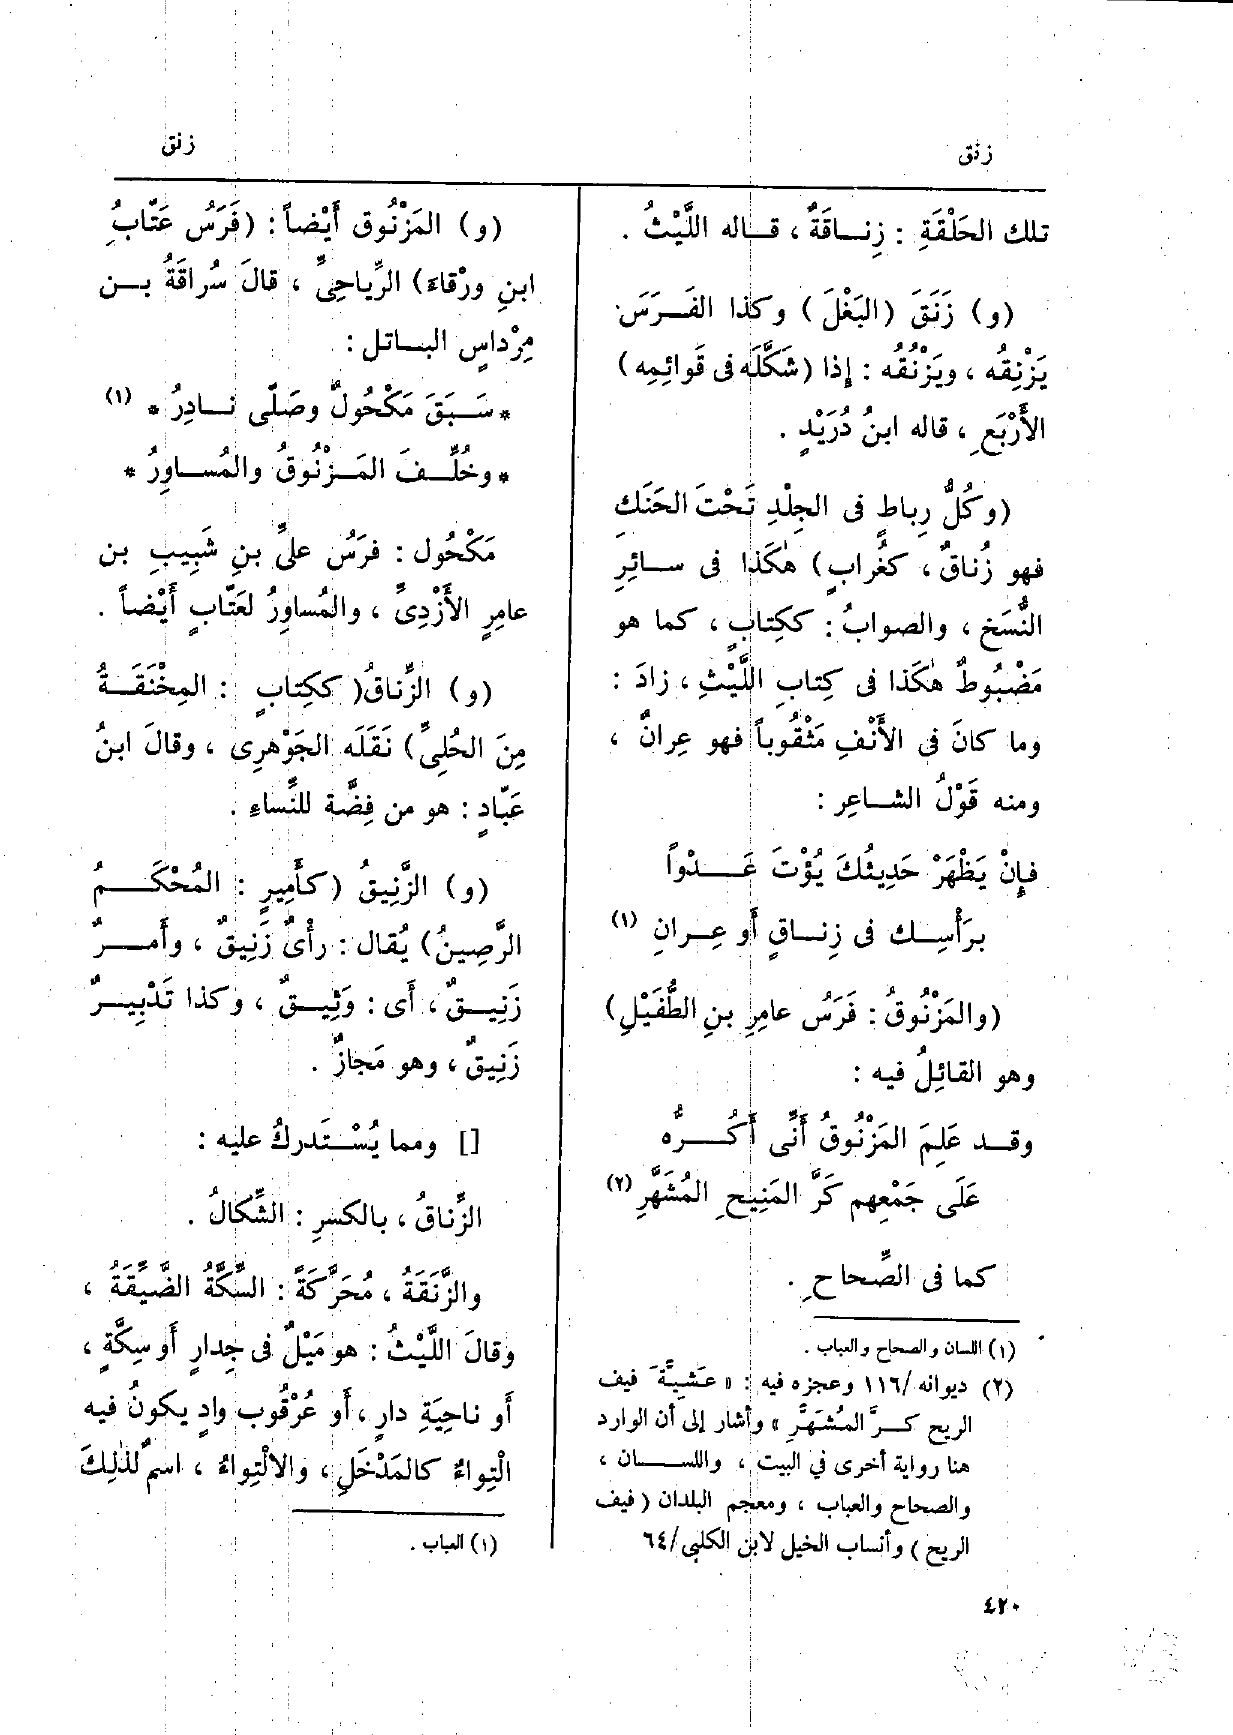 زنق
زنق
تلك الحَلْقَةِ : زِنـاقَةٌ ، قـاله اللَّيْثُ .
(و) زَنَقَ (البَغْلَ) وكذا الفَـرَسَ
يَزْنِقُه ، ويَزْنُقُه : إذا (شَكَّلَه فى قَوائِمِه)
الأَرْبَعِ ، قاله ابنُ دُرَيْدٍ .
(وكُلُّ رِباطٍ فى الجِلْدِ تَحْتَ الحَنَكِ
فهو زُناقٌ ، كغُرابٍ) هٰكَذا فى سـائِرِ
النُّسَخِ ، والصوابُ : ككِتابٍ ، كما هو
مَضْبُوطٌ هٰكَذا فى كِتابِ اللَّيْثِ ، زادَ :
وما كانَ فى الأَنْفِ مَثْقُوباً فهو عِرانٌ ،
ومنه قَوْلُ الشـاعِرِ :
فإِنْ يَظْهَرْ حَدِيثُكَ يُؤْتَ عَــدْواً
برَأْسِـك فى زِنـاقٍ أو عِـرانِ (١)
(والمَزْنُوقُ : فَرَسُ عامِرِ بنِ الطُّفَيْلِ)
وهو القائِلُ فيه :
وقـد عَلِمَ المَزْنُوقُ أَنِّى أَكُـــرُّه
عَلَى جَمْعِهم كَرَّ المَنِيحِ المُشَهَّرِ (٢)
كما فى الصِّحاحِ .
(١) اللسان والصحاح والعباب .
(٢) ديوانه /١١٦ وعجزه فيه : « عَشِيَّةَ فيف
الريح كـرَّ المُشَهَّرِ » وأشار إلى أن الوارد
هنا رواية أخرى في البيت ، واللســان ،
والصحاح والعباب ، ومعجم البلدان ( فيف
الريح ) وأنساب الخيل لابن الكلبي /٦٤
(و) المَزْنُوق أَيْضاً : (فَرَسُ عَتّابُِ
ابنِ ورْقاءَ) الرِّياحِىِّ ، قالَ سُراقَةُ بـن
مِرْداسٍ البـاتل :
* سَـبَقَ مَكْحُولٌ وصَلّى نـادِرُ * (١)
* وخُلِّـفَ المَـزْنُوقُ والمُسـاوِرُ *
مَكْحُول : فرَسُ علىِّ بنِ شَبِيبِ بن
عامِرٍ الأَزْدِىِّ ، والمُساوِرُ لعَتّابٍ أَيْضاً .
(و) الزِّناقُ( ككِتابٍ : المِخْنَقَـةُ
مِنَ الحُلِىِّ) نَقَلَه الجَوْهَرِى ، وقالَ ابنُ
عَبّادٍ : هو من فِضَّة للنِّساءِ .
(و) الزَّنِيقُ (كأَمِيرٍ : المُحْكَـمُ
الرَّصِينُ) يُقال : رأْىٌ زَنِيقٌ ، وأَمـرٌ
زَنِيـقٌ ، أَى : وَثِيـقٌ ، وكذا تَدْبِيـرٌ
زَنِيقٌ ، وهو مَجازٌ .
[] ومما يُسْـتَدركُ عليه :
الزِّناقُ ، بالكسرِ : الشِّكالُ .
والزَّنَقَةُ ، مُحَرَّكَةً : السِّكَّةُ الضَّيِّقَةُ ،
وقالَ اللَّيْثُ : هو مَيْلٌ فى جِدارٍ أَو سِكَّةٍ ،
أَو ناحِيَةِ دارٍ ، أَو عُرْقُوبِ وادٍ يكونُ فيه
الْتِواءٌ كالمَدْخَلِ ، والالْتِواءُ ، اسمٌ لذٰلِكَ
(١) العباب .
٤٢٠